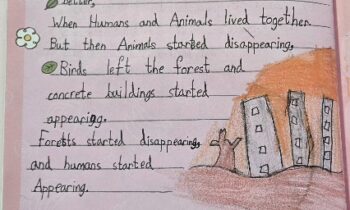 better,
When Humans and Animals lived together.
But then Animals started disappearing,
Birds left the forest and
concrete buildings started
appearing.
Forests started disappearing,
and humans started
Appearing.